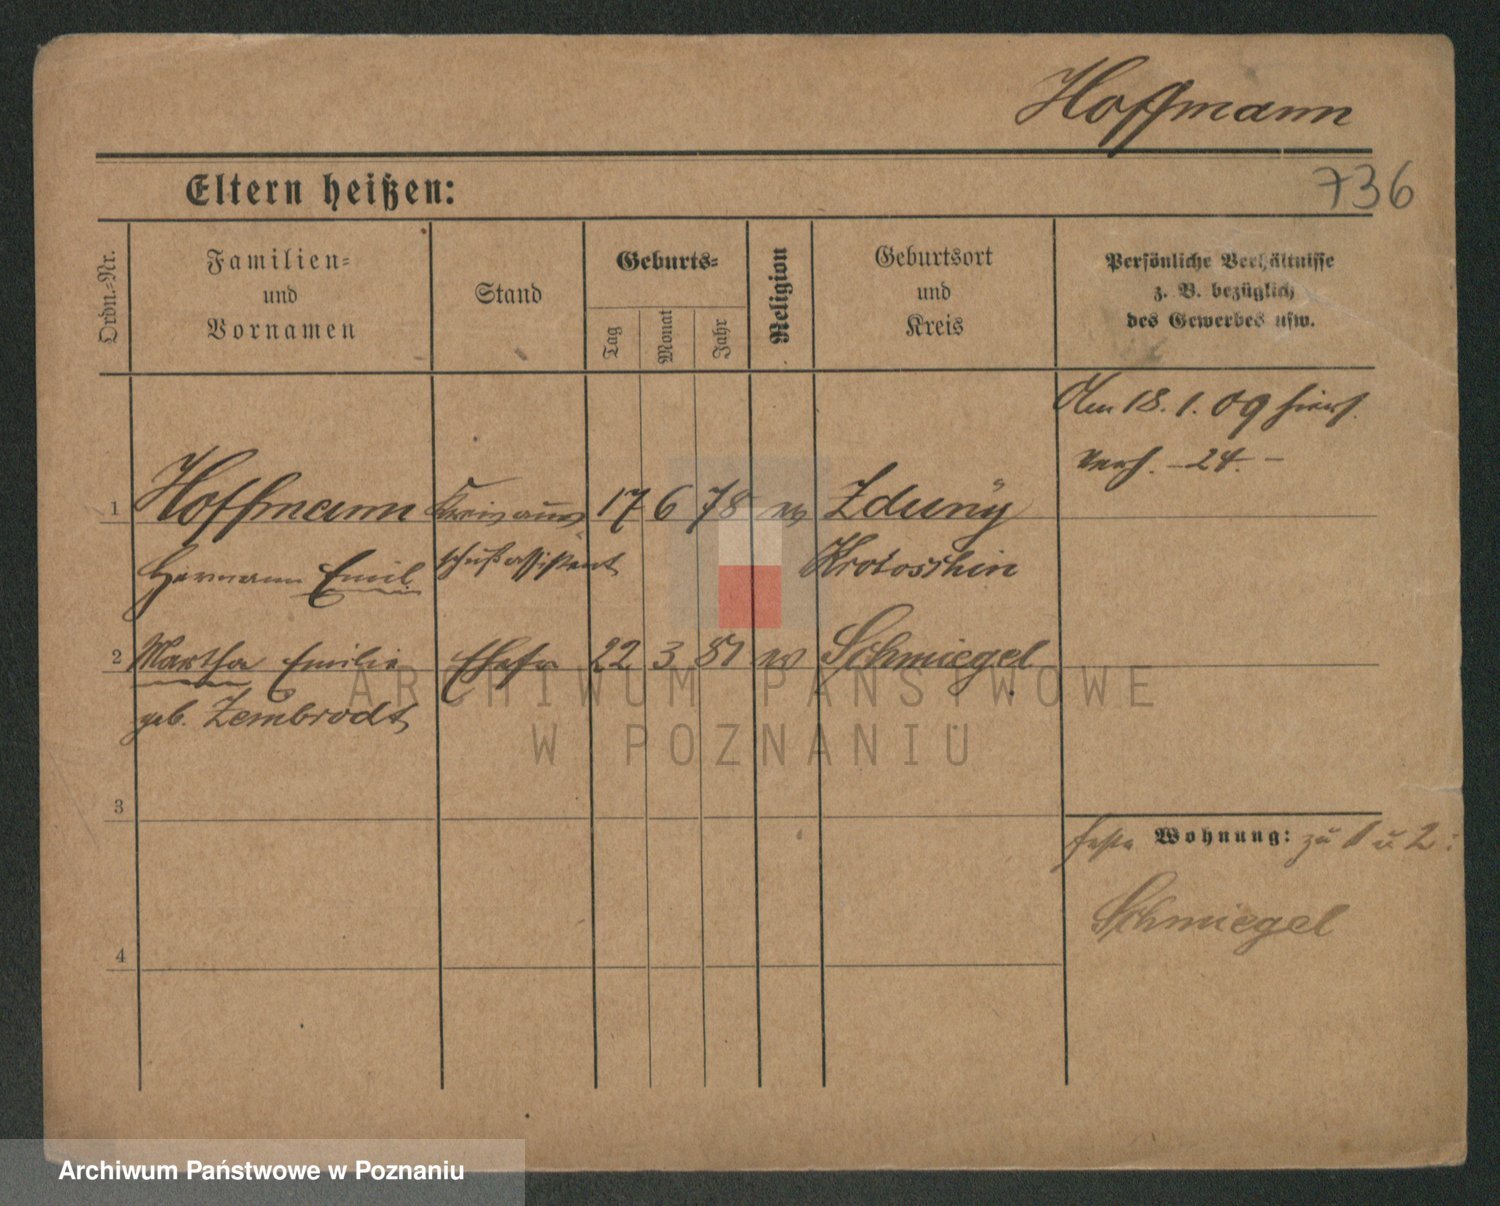 Hoffmann
736
Eltern heißen:
Ordn.-Nr.
Familien-
und
Vornamen
Stand
Geburts-
Tag
Monat
Jahr
Religion
Geburtsort
und
Kreis
Persönliche Verhältnisse
z. B. bezüglich
des Gewerbes usw.
Am 18. 1. 09 hiers.
verh. - 24. -
1 Hoffmann Kreisaus 17 6 78 ev Zduny
Hermann Emil schußassistent Krotoschin
2 Martha Emilie Ehefr 22 3 81 ev Schmiegel
geb. Zembrodt
3
feste Wohnung: zu 1 u 2:
Schmiegel
4
ARCHIWUM PAŃSTWOWE
W POZNANIU
Archiwum Państwowe w Poznaniu